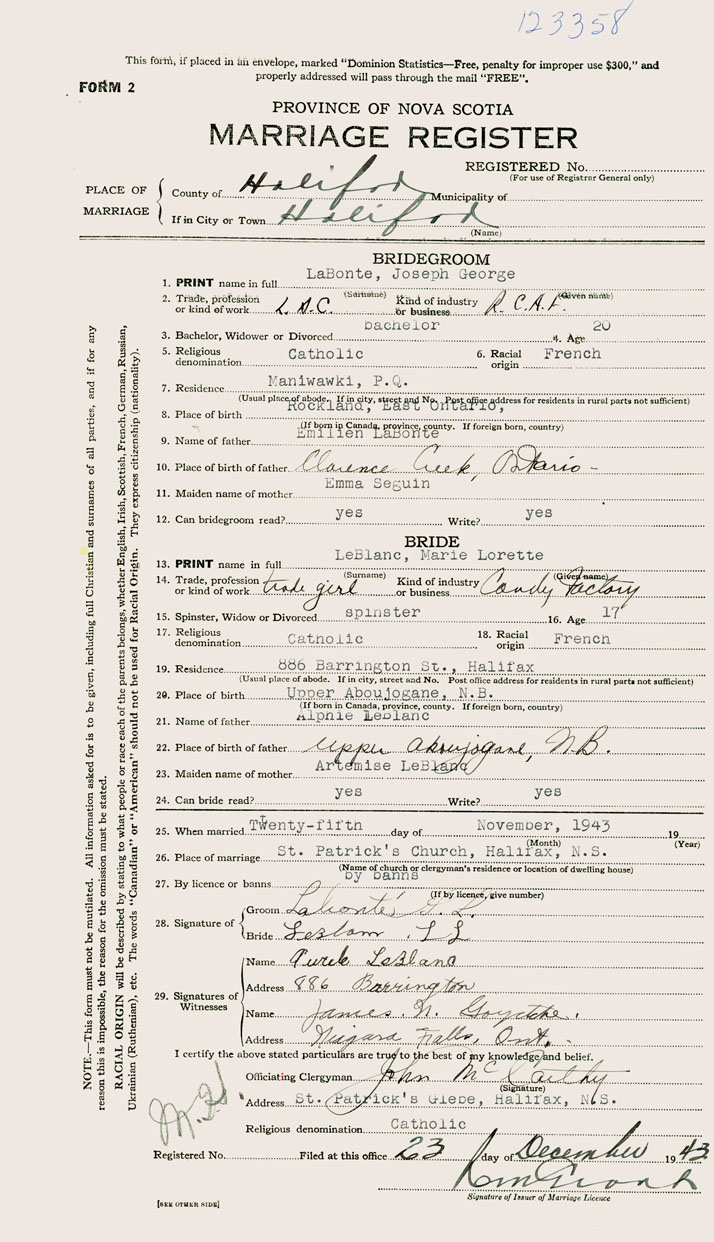 123358
This form, if placed in an envelope, marked "Dominion Statistics—Free, penalty for improper use $300," and
properly addressed will pass through the mail "FREE".
FORM 2
PROVINCE OF NOVA SCOTIA
MARRIAGE REGISTER
REGISTERED No.
(For use of Registrar General only)
PLACE OF MARRIAGE
County of Halifax Municipality of
If in City or Town Halifax
(Name)
BRIDEGROOM
1. PRINT name in full LaBonte, Joseph George
(Surname) (Given name)
2. Trade, profession or kind of work L.A.C. Kind of industry or business R.C.A.F.
3. Bachelor, Widower or Divorced bachelor 4. Age 20
5. Religious denomination Catholic 6. Racial origin French
7. Residence Maniwawki, P.Q.
(Usual place of abode. If in city, street and No. Post office address for residents in rural parts not sufficient)
8. Place of birth Rockland, East Ontario,
(If born in Canada, province, county. If foreign born, country)
9. Name of father Emilien LaBonte
10. Place of birth of father Clarence Creek, Ontario -
11. Maiden name of mother Emma Seguin
12. Can bridegroom read? yes Write? yes
BRIDE
13. PRINT name in full LeBlanc, Marie Lorette
(Surname) (Given name)
14. Trade, profession or kind of work trade girl Kind of industry or business Candy Factory
15. Spinster, Widow or Divorced spinster 16. Age 17
17. Religious denomination Catholic 18. Racial origin French
19. Residence 886 Barrington St., Halifax
(Usual place of abode. If in city, street and No. Post office address for residents in rural parts not sufficient)
20. Place of birth Upper Aboujogane, N.B.
(If born in Canada, province, county. If foreign born, country)
21. Name of father Alphie Leblanc
22. Place of birth of father Upper Aboujogane, N.B.
23. Maiden name of mother Artemise LeBlanc
24. Can bride read? yes Write? yes
25. When married Twenty-fifth day of November, 1943 19
(Month) (Year)
26. Place of marriage St. Patrick's Church, Halifax, N.S.
(Name of church or clergyman's residence or location of dwelling house)
27. By licence or banns by banns
(If by licence, give number)
28. Signature of
Groom Labonté
Bride
29. Signatures of Witnesses
Name LeBlanc
Address 886 Barrington
Name James
Address Niagara Falls, Ont.
I certify the above stated particulars are true to the best of my knowledge and belief.
Officiating Clergyman John McCarthy
(Signature)
Address St. Patrick's Glebe, Halifax, N.S.
Religious denomination Catholic
Registered No. Filed at this office 23 day of December 1943
Signature of Issuer of Marriage Licence
[SEE OTHER SIDE]
NOTE.—This form must not be mutilated. All information asked for is to be given, including full Christian and surnames of all parties, and if for any
reason this is impossible, the reason for the omission must be stated.
RACIAL ORIGIN will be described by stating to what people or race each of the parents belongs, whether English, Irish, Scottish, French, German, Russian,
Ukrainian (Ruthenian), etc. The words "Canadian" or "American" should not be used for Racial Origin. They express citizenship (nationality).